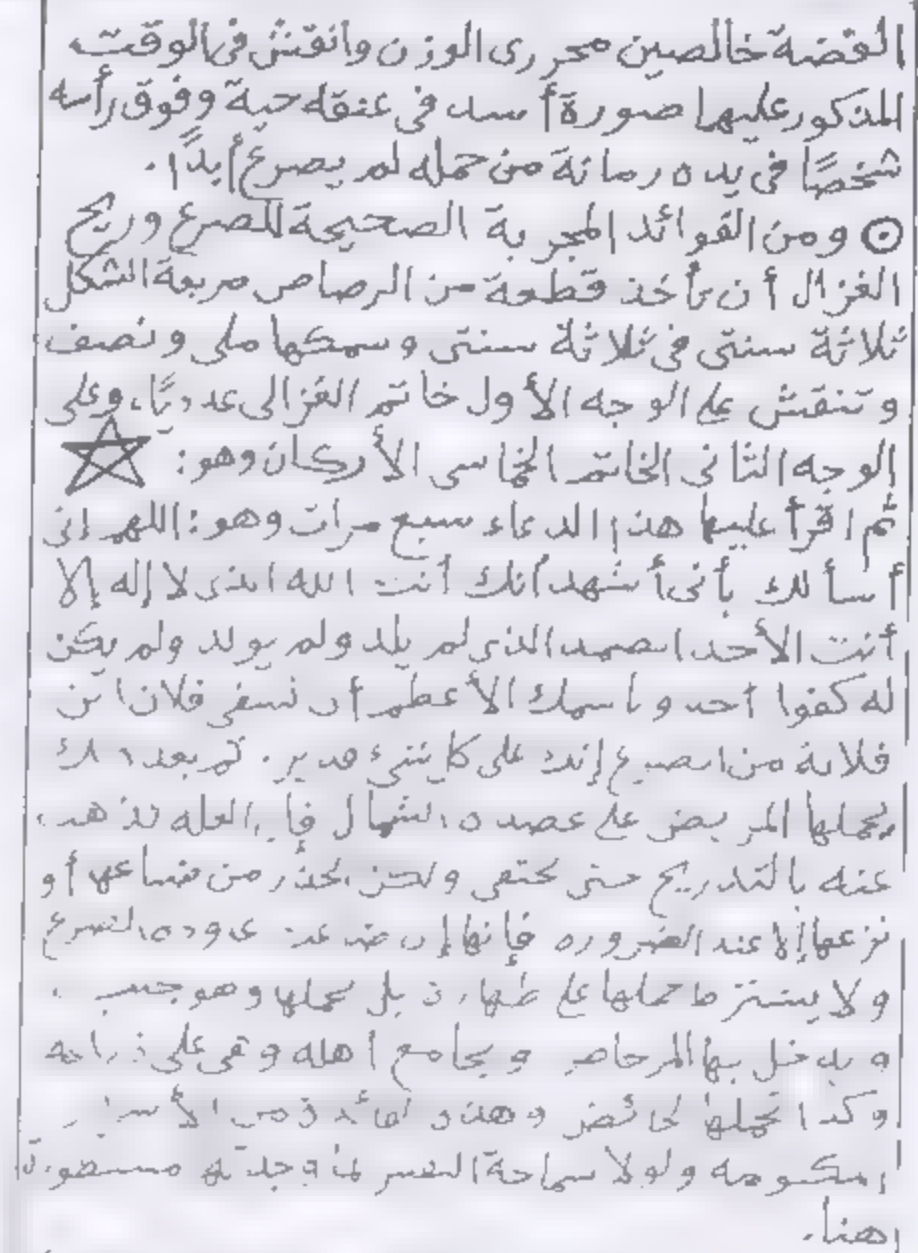 الفضة خالصين محررى الوزن وانقش فى الوقت
المذكور عليها صورة أسد فى عنقه حية وفوق رأسه
شخصًا فى يده رمانة من حمله لم يصرع أبدًا.
ومن الفوائد المجربة الصحيحة للصرع وريح
الغزال أن تأخذ قطعة من الرصاص مربعة الشكل
ثلاثة سنتى فى ثلاثة سنتى وسمكها ملى ونصف
وتنقش على الوجه الأول خاتم الغزالى عدديًا، وعلى
الوجه الثانى الخاتم الخماسى الأركان وهو:
ثم اقرأ عليها هذا الدعاء سبع مرات وهو: اللهم إنى
أسألك بأنى أشهد أنك أنت الله الذى لا إله إلا
أنت الأحد الصمد الذى لم يلد ولم يولد ولم يكن
له كفوا أحد وباسمك الأعظم أن تشفى فلان ابن
فلانة من الصرع إنك على كل شىء قدير. ثم بعد ذلك
يحملها المريض على عضده الشمال فإن العلة تذهب
عنه بالتدريج حتى تختفى ولكن احذر من ضياعها أو
نزعها إلا عند الضرورة فإنها إن ضاعت عاوده الصرع
ولا يشترط حملها على طهارة بل يحملها وهو جنب
ويدخل بها المرحاض ويجامع أهله وهى على ذراعه
وكذا تحملها الحائض وهذه الفائدة من الأسرار
المكتومة ولولا سماحة النفس لما وجدتها مسطورة
هنا.